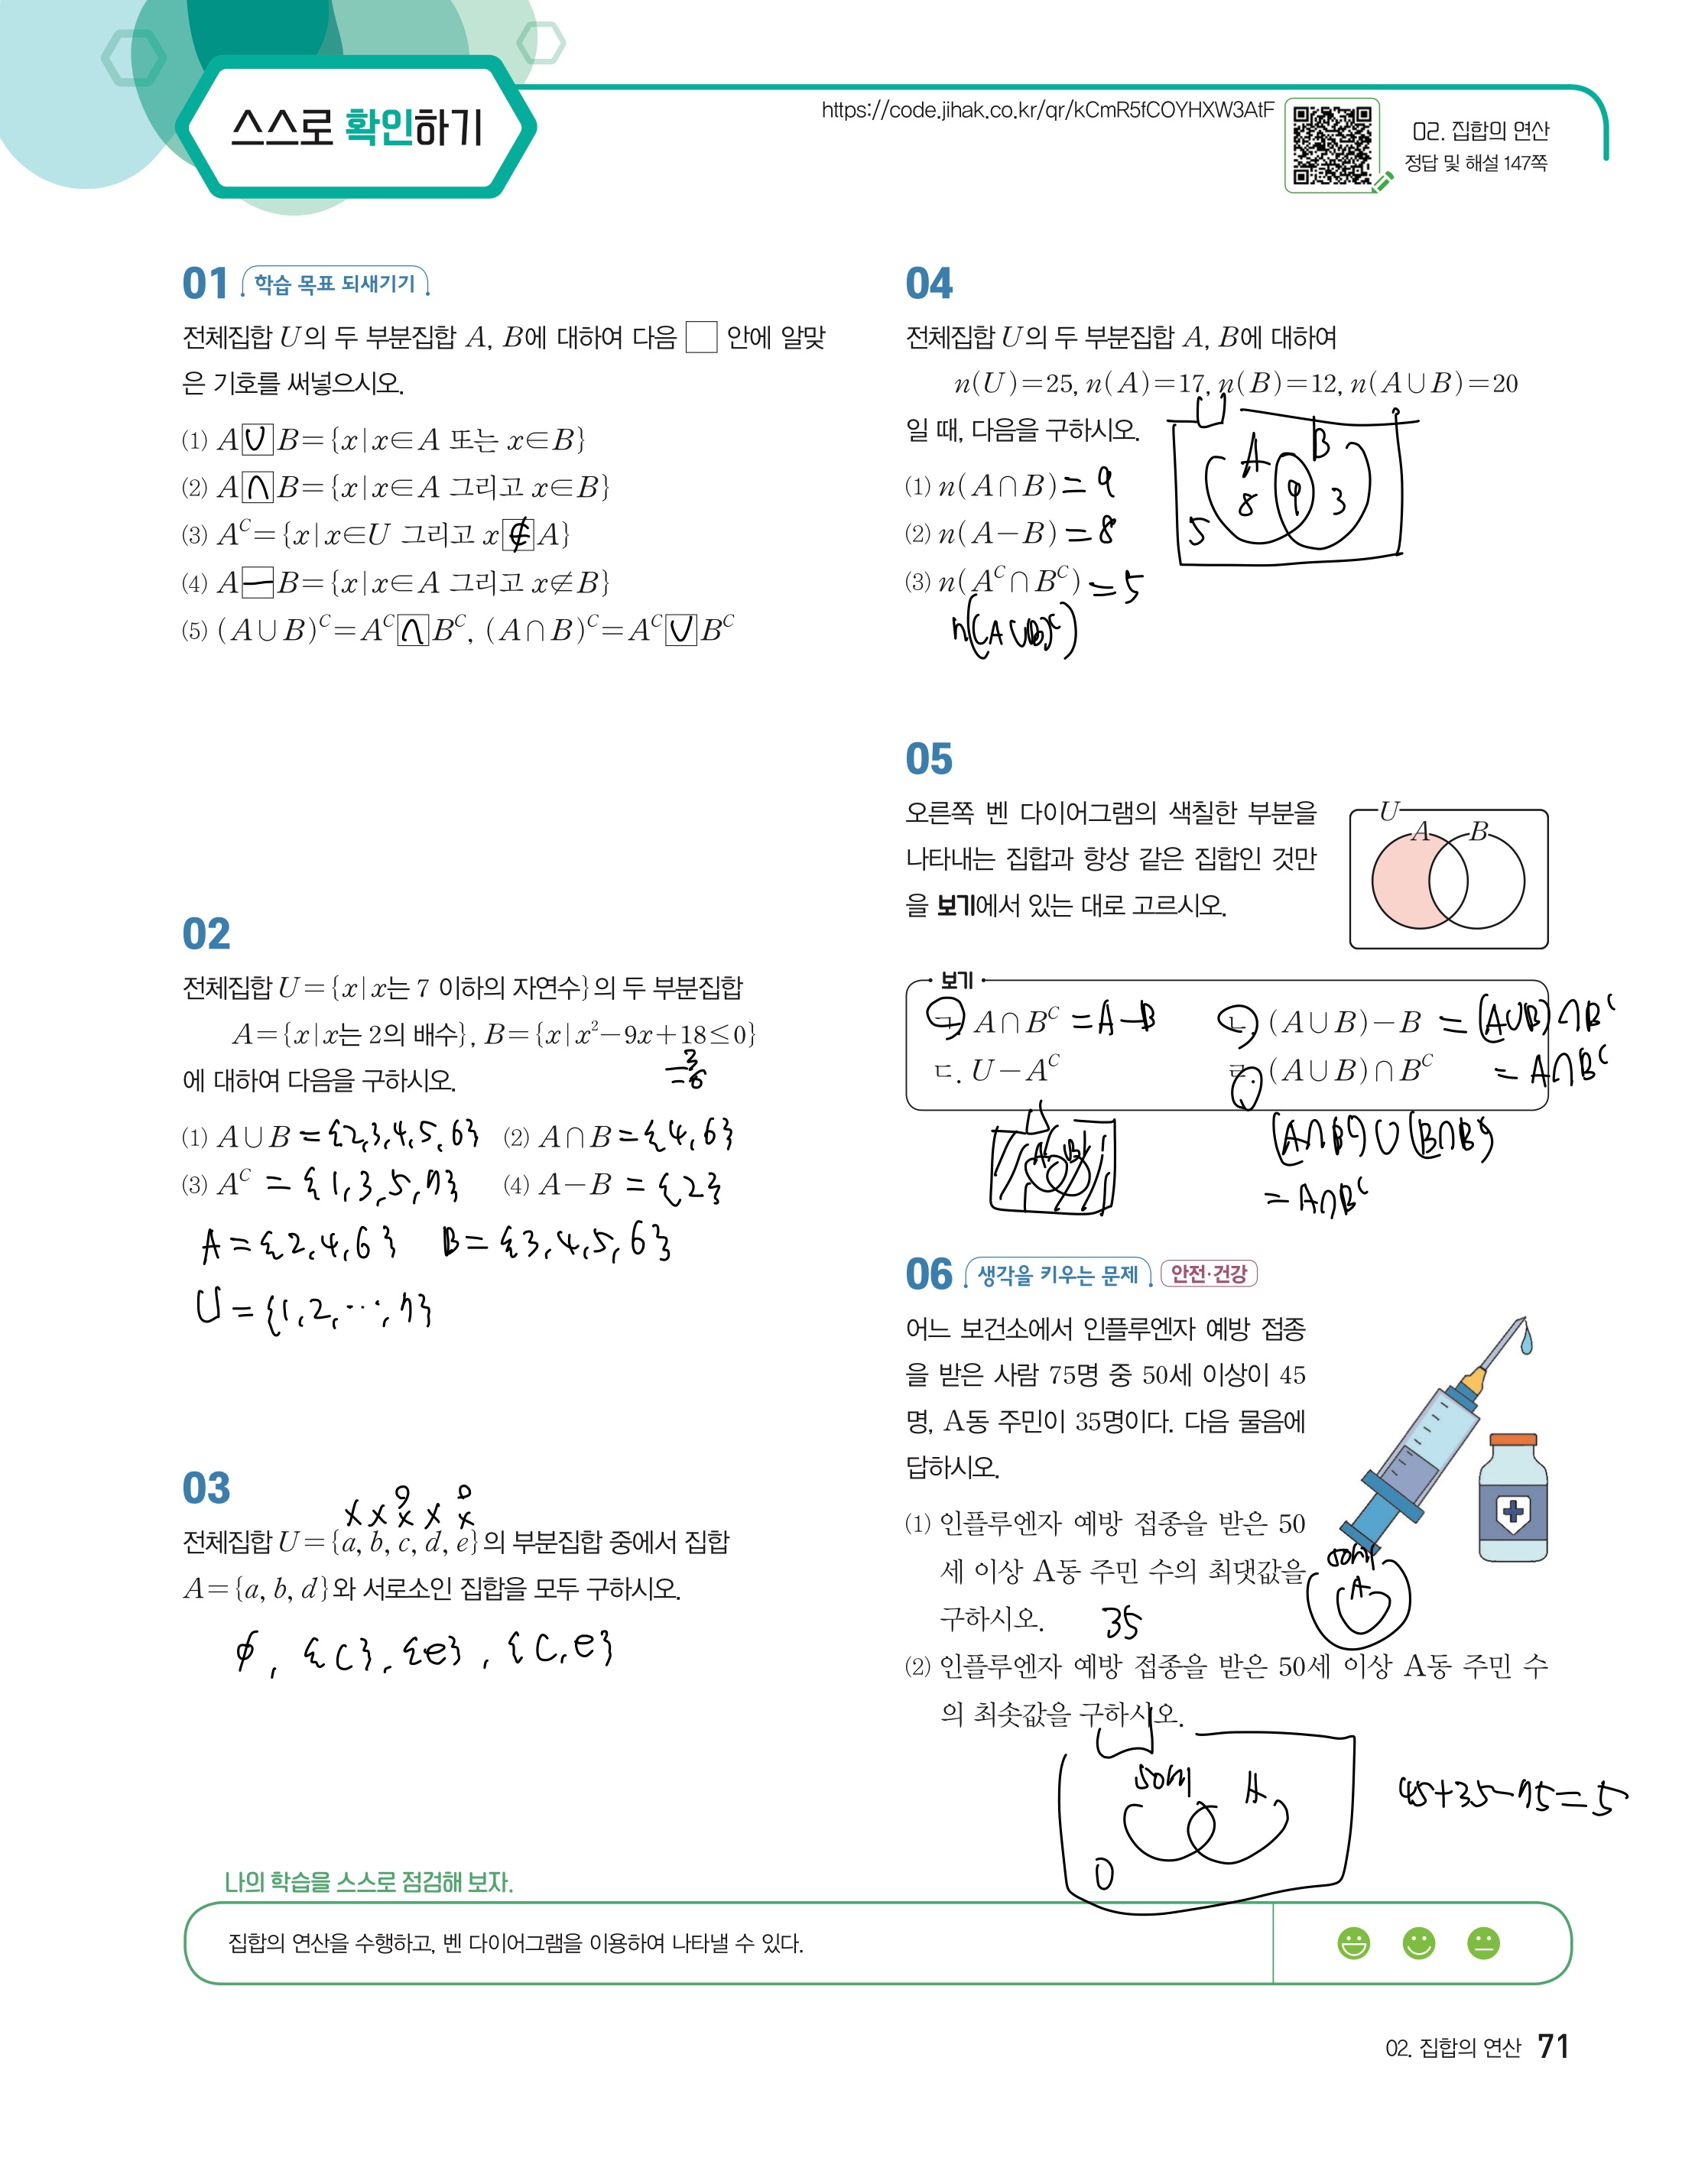 스스로 확인하기
https://code.jihak.co.kr/qr/kCmR5fCOYHXW3AtF
02. 집합의 연산
정답 및 해설 147쪽
01 학습 목표 되새기기
전체집합 U의 두 부분집합 A, B에 대하여 다음 □ 안에 알맞
은 기호를 써넣으시오.
(1) A ∪ B={x|x∈A 또는 x∈B}
(2) A ∩ B={x|x∈A 그리고 x∈B}
(3) Aᶜ={x|x∈U 그리고 x ∉ A}
(4) A − B={x|x∈A 그리고 x∉B}
(5) (A∪B)ᶜ=Aᶜ ∩ Bᶜ, (A∩B)ᶜ=Aᶜ ∪ Bᶜ
02
전체집합 U={x|x는 7 이하의 자연수}의 두 부분집합
A={x|x는 2의 배수}, B={x|x²−9x+18≤0}
−3
−6
에 대하여 다음을 구하시오.
(1) A∪B = {2,3,4,5,6} (2) A∩B = {4,6}
(3) Aᶜ = {1,3,5,7} (4) A−B = {2}
A = {2,4,6} B = {3,4,5,6}
U = {1,2,⋯,7}
03
o o
x x x x x
전체집합 U={a, b, c, d, e}의 부분집합 중에서 집합
A={a, b, d}와 서로소인 집합을 모두 구하시오.
∅, {c}, {e}, {c,e}
04
전체집합 U의 두 부분집합 A, B에 대하여
n(U)=25, n(A)=17, n(B)=12, n(A∪B)=20
일 때, 다음을 구하시오.
(1) n(A∩B) = 9
(2) n(A−B) = 8
(3) n(Aᶜ∩Bᶜ) = 5
n((A∪B)ᶜ)
U
A B
8 9 3
5
05
오른쪽 벤 다이어그램의 색칠한 부분을
나타내는 집합과 항상 같은 집합인 것만
을 보기에서 있는 대로 고르시오.
U
A B
보기
ㄱ. A∩Bᶜ = A−B ㄴ. (A∪B)−B = (A∪B)∩Bᶜ
ㄷ. U−Aᶜ ㄹ. (A∪B)∩Bᶜ = A∩Bᶜ
U
A B
(A∩Bᶜ)∪(B∩Bᶜ)
= A∩Bᶜ
06 생각을 키우는 문제 안전·건강
어느 보건소에서 인플루엔자 예방 접종
을 받은 사람 75명 중 50세 이상이 45
명, A동 주민이 35명이다. 다음 물음에
답하시오.
(1) 인플루엔자 예방 접종을 받은 50
세 이상 A동 주민 수의 최댓값을
구하시오. 35
50세
A
(2) 인플루엔자 예방 접종을 받은 50세 이상 A동 주민 수
의 최솟값을 구하시오.
U
50세 A
0
45+35−75=5
나의 학습을 스스로 점검해 보자.
집합의 연산을 수행하고, 벤 다이어그램을 이용하여 나타낼 수 있다.
02. 집합의 연산 71